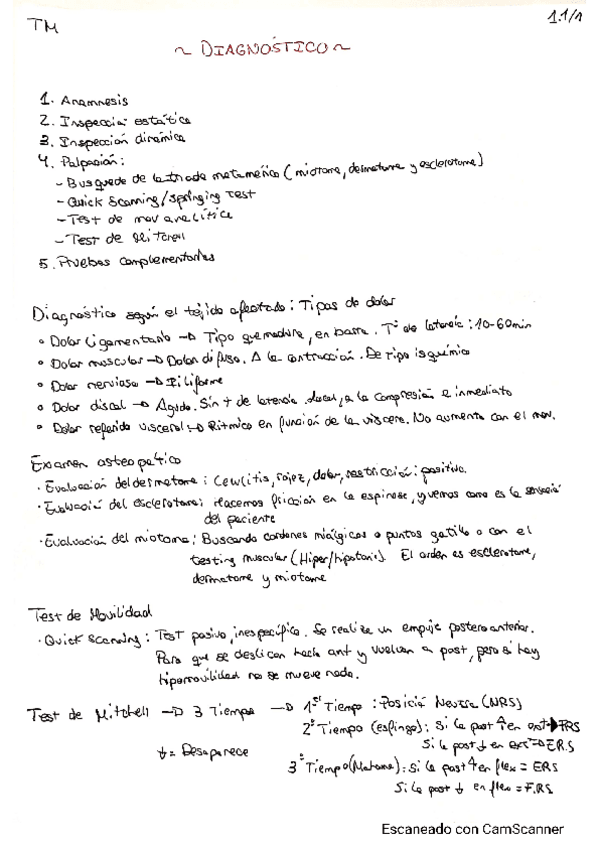 TM
1.1/1
~ DIAGNÓSTICO ~
1. Anamnesis
2. Inspección estática
3. Inspección dinámica
4. Palpación:
- Busquede de la triade metamérica (miotoma, dermatoma y esclerotoma)
- Quick Scanning/springing Test
- Test de mov analítica
- Test de Mitchell
5. Pruebas complementarias
Diagnóstico según el tejido afectado: Tipos de dolor
• Dolor Ligamentario → Tipo quemadura, en barra. Tº de latencia: 10-60min
• Dolor muscular → Dolor difuso. A la contracción. De tipo isquémico
• Dolor nervioso → Filiforme
• Dolor discal → Agudo. Sin t de latencia. Local, a la compresión e inmediato
• Dolor referido visceral → Rítmico en función de la víscera. No aumenta con el mov.
Examen osteopático
· Evaluación del dermatoma: Celulitis, rojez, dolor, restricción: positivo.
· Evaluación del esclerotoma: Hacemos fricción en la espinosa, y vemos como es la sensación
del paciente
· Evaluación del miotoma: Buscando cordones miálgicos o puntos gatillo o con el
testing muscular (Hiper/hipotonía) El orden es esclerotoma,
dermatoma y miotoma
Test de Movilidad
· Quick Scanning: Test pasivo, inespecífico. Se realiza un empuje posteroanterior.
Para que se deslicen hacia ant y vuelvan a post, pero si hay
hipomovilidad no se mueve nada.
Test de Mitchell → 3 Tiempos → 1er Tiempo: Posició Neutra (NRS)
2º Tiempo (esfinge): Si la post ↑ en ext → FRS
↓ = Desaparece
Si la post ↓ en ext → E.R.S
3º Tiempo (Mahoma): Si la post ↑ en flex = ERS
Si la post ↓ en flex = F.RS
Escaneado con CamScanner